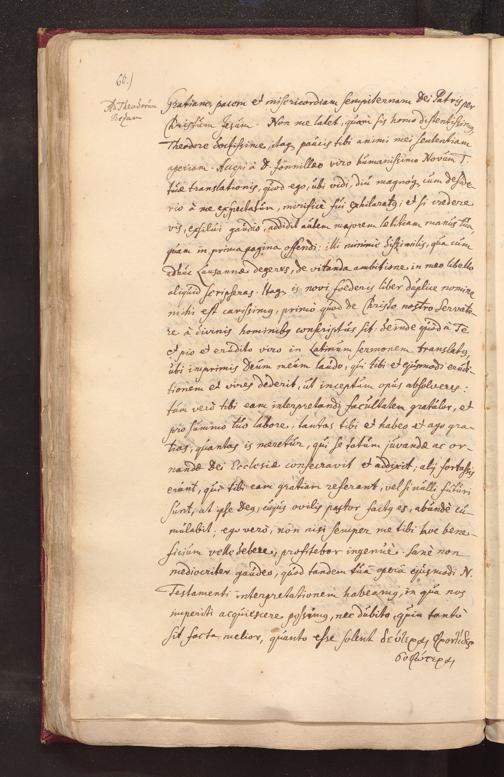 66.)
Ad Theodorum
Bezam
Gratiam, pacem et misericordiam sempiternam Dei Patris per
Christum Jesum. Non me latet, quam sis homo distentissimus
Theodore doctissime, itaq paucis tibi animi mei sententiam
aperiam. Accepi a D. Fonnilleo viro humanissimo Novum T.
tuae translationis, quod ego, ubi vidi, diu magnoq cum deside-
rio a me expectatum, mirifice fui exhilaratus; et si credere
vis, exsilui gaudio, addidit autem majorem laetitiam manus tua
quam in prima pagina offendi: illi minime dissimilis, qua cum
adhuc Lausannae degeres, de vitanda ambitione, in meo libello
aliquid scripseras. Itaq is novi foederis liber duplice nomine
mihi est carissimus, primo quod de Christo nostro Servato-
re a divinis hominibus conscriptus sit: deinde quod a Te
et pio et erudito viro in Latinum sermonem translatus,
ubi inprimis Deum meum laudo, qui tibi et ejusmodi erudi-
tionem et vires dederit, ut inceptum opus absolveres:
tum vero tibi eam interpretandi facultatem gratulor, et
pro summo tuo labore, tantas tibi et habeo et ago gra-
tias, quantas is meretur, qui se totum juvandae ac or-
nandae Dei Ecclesiae consecravit et addixit; alij fortassis
erunt, qui tibi eam gratiam referant, vel si nulli futuri
sunt, at ipse Deus, cujus ovilis pastor factus es, abunde cu-
mulabit; ego vero, non nisi semper me tibi hoc bene-
ficium velle debere, profitebor ingenue. Sane non
mediocriter gaudeo, quod tandem tua opera ejusmodi N.
Testamenti interpretationem habeamus, in qua nos
imperiti acquiescere possimus, nec dubito, quin tanto
sit facta melior, quanto esse solent δεύτεραι φροντίδες
σοφώτεραι